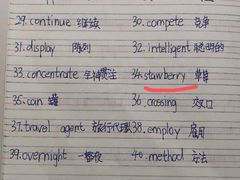 29.continue 继续 30.compete 竞争
31.display 陈列 32.intelligent 聪明的
33.concentrate 全神贯注 34.stawberry 草莓
35.can 罐 36.crossing 交叉口
37.travel agent 旅行代理 38.employ 雇用
39.overnight 一整夜 40.method 方法